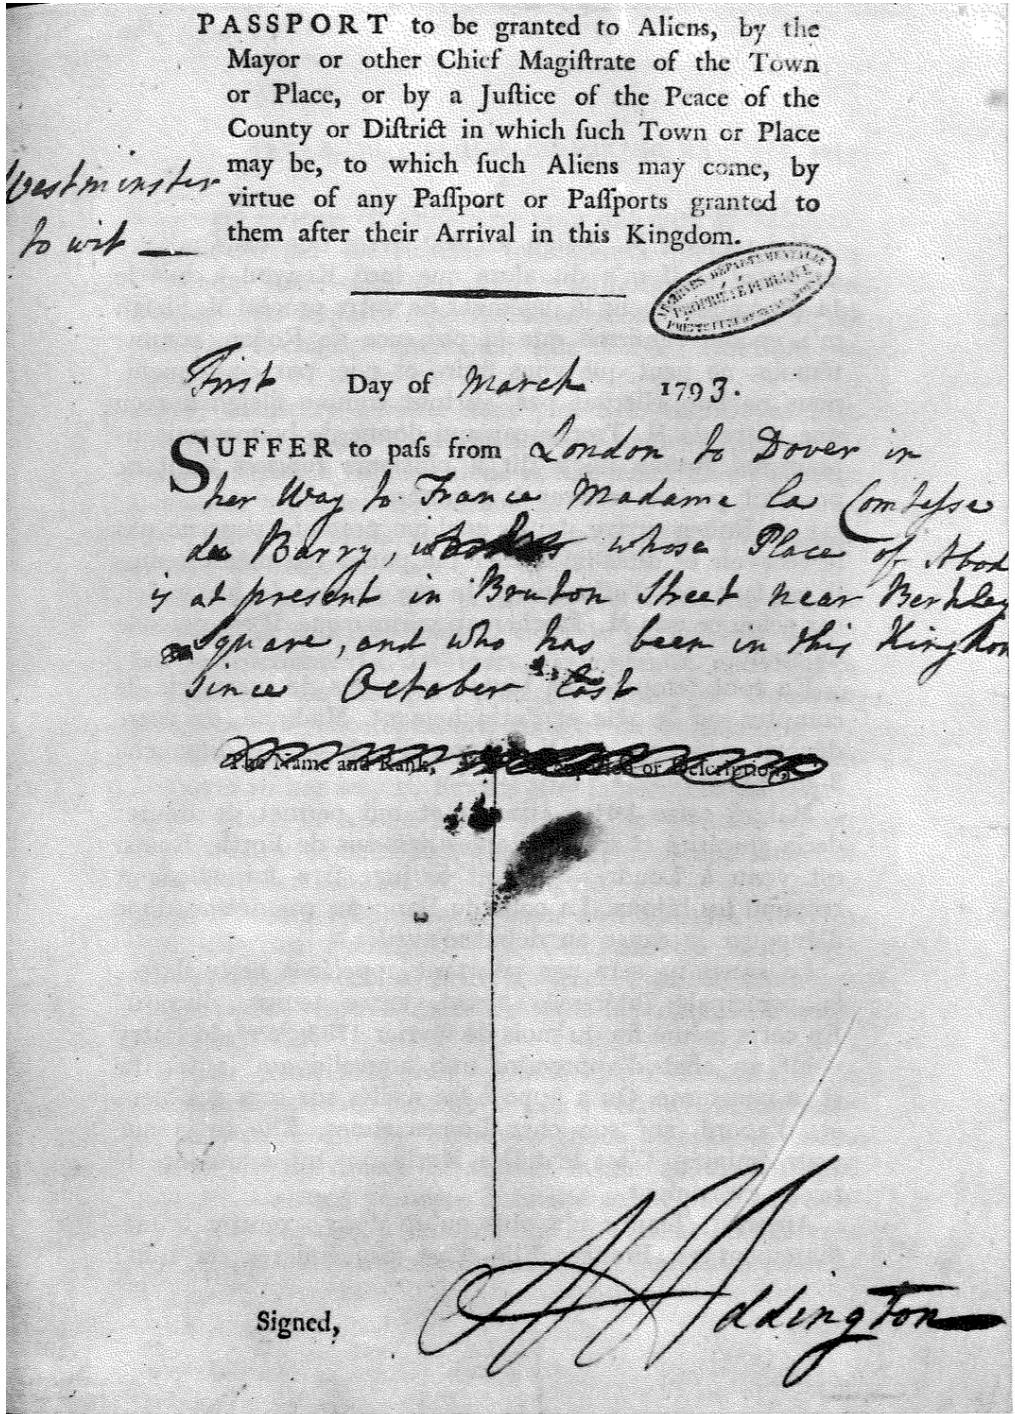 PASSPORT to be granted to Aliens, by the
Mayor or other Chief Magiſtrate of the Town
or Place, or by a Juſtice of the Peace of the
County or Diſtrict in which ſuch Town or Place
may be, to which ſuch Aliens may come, by
virtue of any Paſſport or Paſſports granted to
them after their Arrival in this Kingdom.
Westminster
to wit
ARCHIVES DÉPARTEMENTALES
PROPRIÉTÉ PUBLIQUE
First Day of March 1793.
SUFFER to paſs from London to Dover in
her Way to France Madame La Comteſse
du Barry, whose Place of Abod
is at present in Bruton Street near Berkley
Square, and who has been in this Kingdom
since October Last
The Name and Rank, or Deſcription,
Signed, Addington